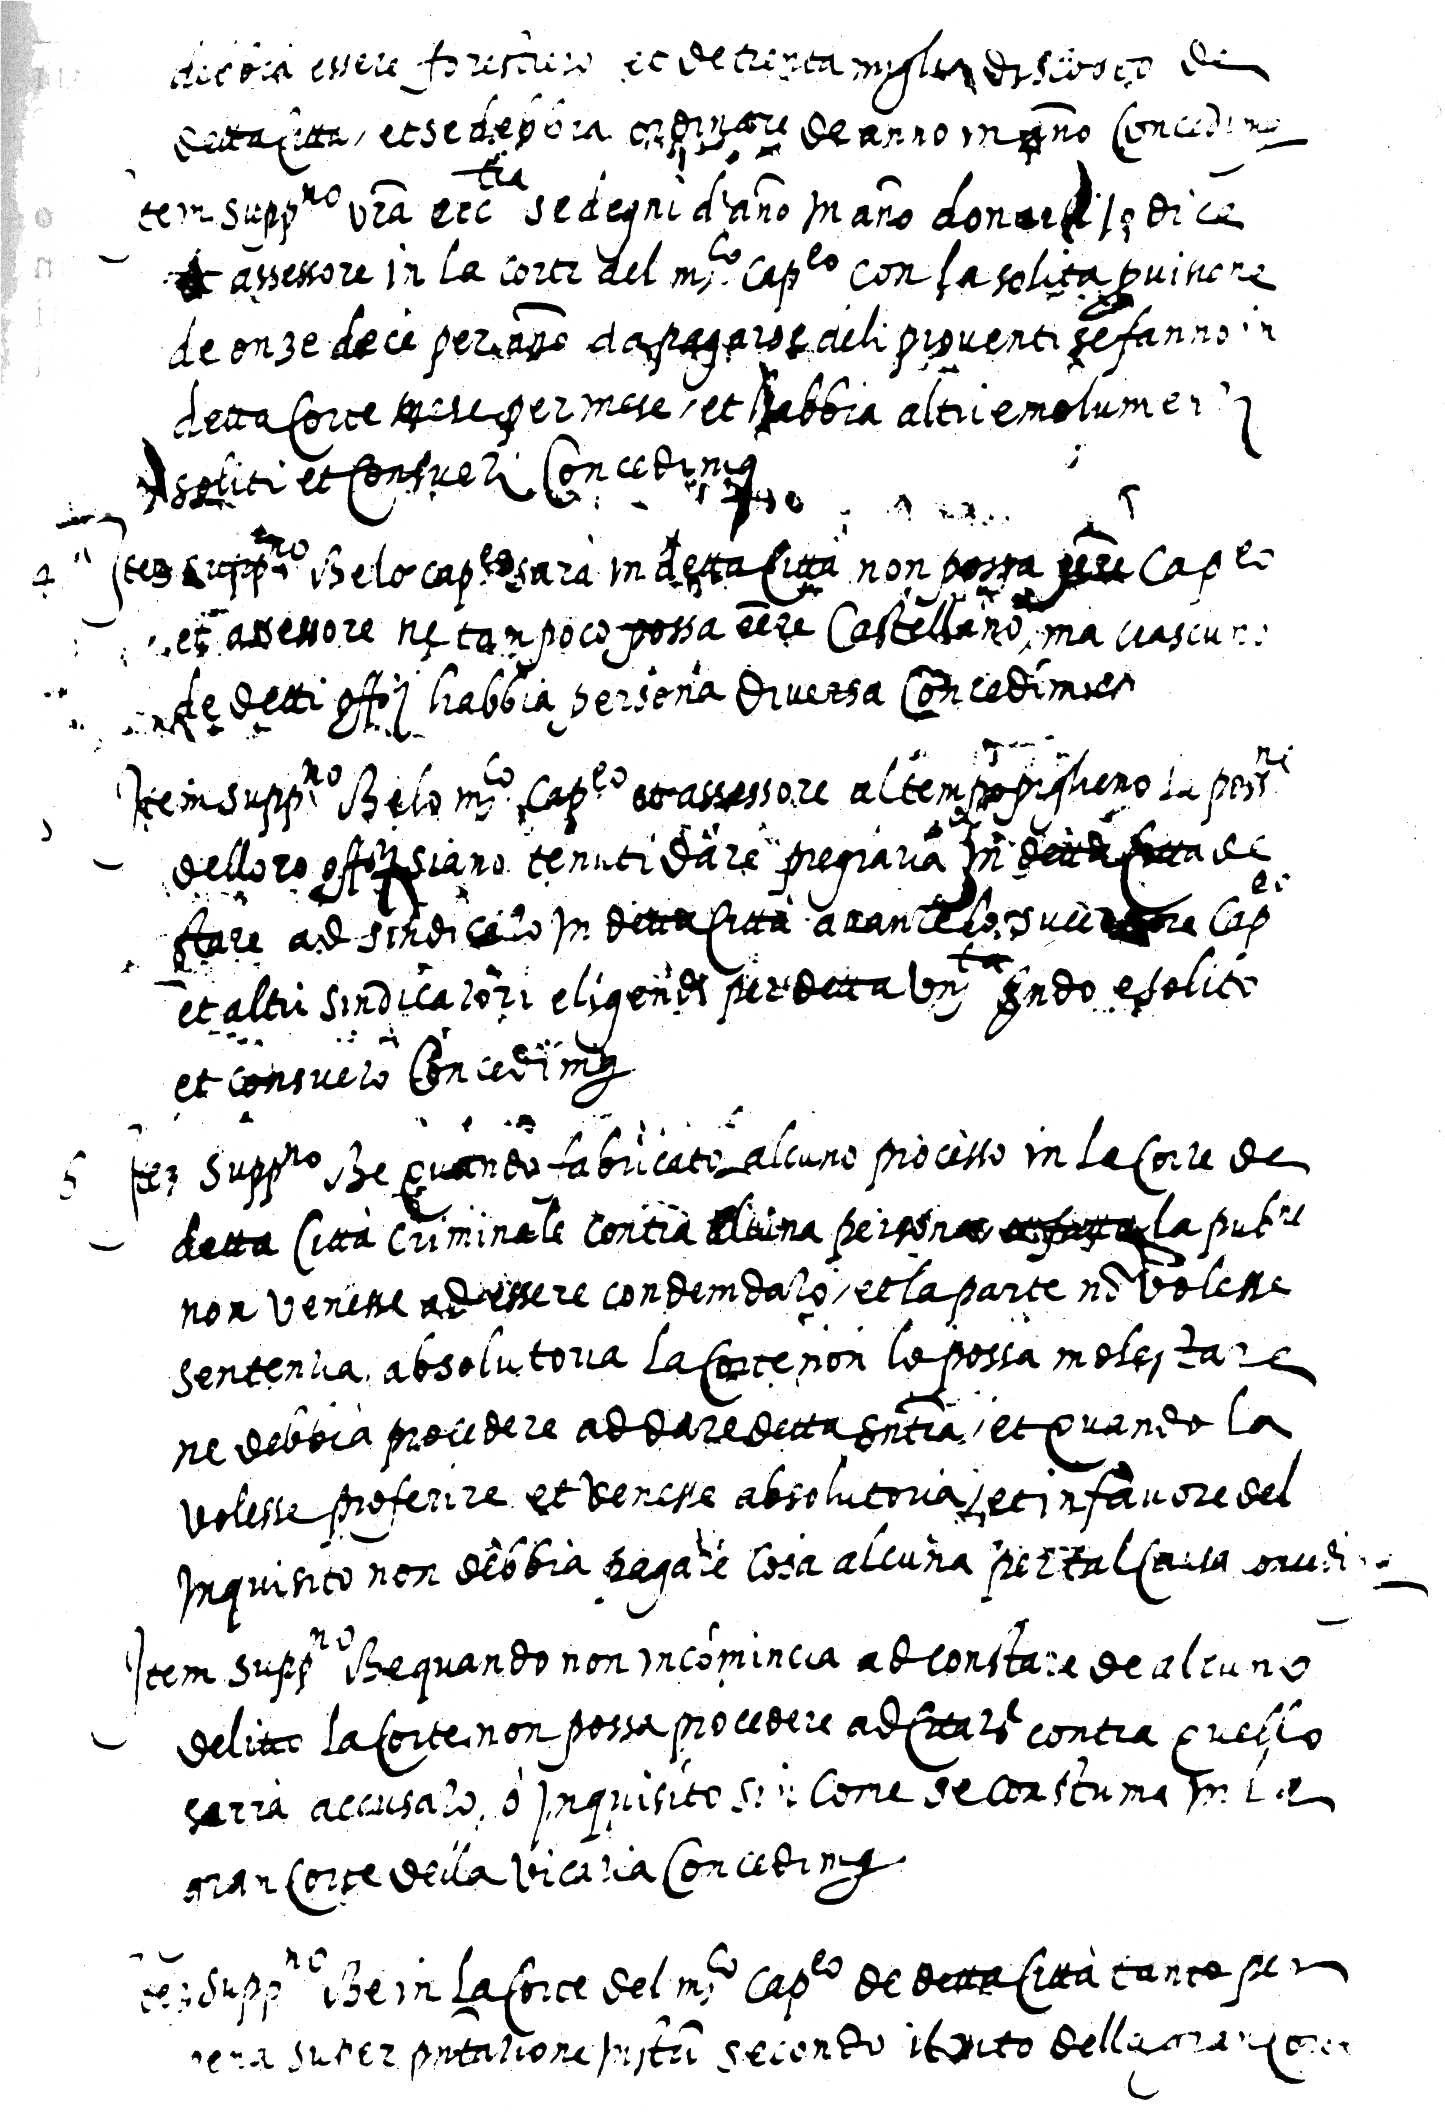 debbia essere forestiero et de trenta miglia discosto de
detta Citta, et se debbia ordinare de anno in año Concedimo
Item suppno vrã ecctia se degni d'año in año donar Iodice
et assessore in la corte del mco capeo con la solita pvisione
de onze dece per año da pagarse deli proventi se fanno in
detta Corte mese per mese, et habbia altri emolumenti
soliti et Consueti Concedimus
4 Item suppno Che lo capeo sarà in detta Città non possa eere Capeo
et assessore ne tampoco possa eere Castellano, ma ciascuno
de detti offij habbia persona diversa Concedimus
Item suppno Che lo mco Capeo et assessore al tempo piglieno la possne
delloro offij siano tenuti dare pregiaria in detta Città de
stare ad sindicato in detta Città avante lo successore Capeo
et altri sindicatori eligendi per detta Unita secundo e solito
et consueto Concedimus
5 Item Suppno Che quando fabricato alcuno processo in la Corte de
detta Città criminale contra alcuna persona la pubne
non venesse ad essere condemdato, et la parte nõ volesse
sentenua absolutoria la Corte non lo possa molestare
ne debbia procedere ad dare detta sntia, et quando la
volesse proferire et venesse absolutoria, et in favore del
Inquisito non debbia pagare cosa alcuna per tal Causa
Item suppno Che quando non incomincia ad constare de alcuno
delitto la Corte non possa procedere ad Citare contra quello
sarrà accusato, o Inquisito si come se constuma in la
gran Corte della Vicaria Concedimus
Item suppno Che in la Corte del mco Capeo de detta Città tanto per
pena super pntatione instrũ secondo il rito della gran Corte